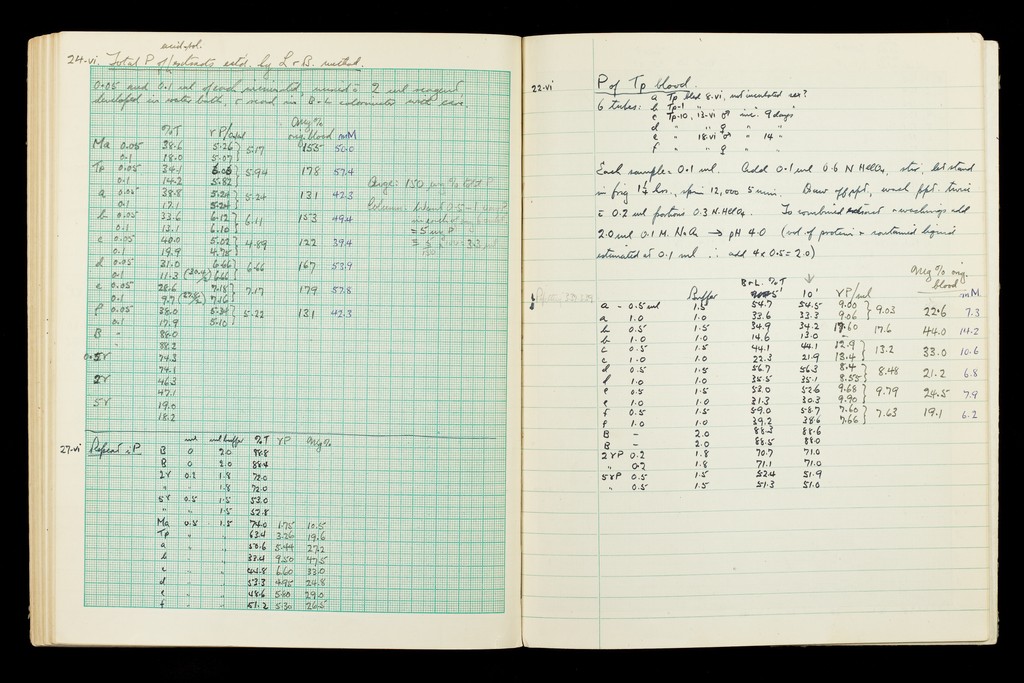 acid-sol.
24-vi. Total P of extracts estd. by L + B. method.
0.05 and 0.1 ml of each mixed c 2 ml reagent,
developed in water bath, & read in B+L colorimeter with
%T γP/ml mg% orig. blood mM
Ma 0.05 38.6 5.26 } 5.17 155 50.0
0.1 18.0 5.07
Tp 0.05 34.1 } 5.94 178 57.4
0.1 14.2 5.82
a 0.05 38.8 5.24 } 5.24 131 42.3
0.1 17.1 5.24
b 0.05 33.6 6.12 } 6.11 153 49.4
0.1 13.1 6.10
c 0.05 40.0 5.02 } 4.89 122 39.4
0.1 19.9 4.75
d 0.05 31.0 6.66 } 6.66 167 53.9
0.1 11.3 6.66
e 0.05 28.6 7.18 } 7.17 179 57.8
0.1 9.7 7.16
f 0.05 38.0 5.34 } 5.22 131 42.3
0.1 17.9 5.10
B - 88.0
" 88.2
74.3
74.1
2γ 46.3
47.1
5γ 19.0
18.2
150 µg % total P
27-vi Repeat iP
ml ml buffer %T γP mg%
B 0 2.0 88.8
B 0 2.0 88.4
2γ 0.2 1.8 72.0
" " 1.8 72.0
5γ 0.5 1.5 53.0
" " 1.5 52.8
Ma 0.5 1.5 74.0 1.75 10.5
Tp " " 63.4 3.26 19.6
a " " 50.6 5.44 27.2
b " " 33.4 9.50 47.5
c " " 44.8 6.60 33.0
d " " 53.3 4.95 24.8
e " " 48.6 5.80 29.0
f " " 51.2 5.30 26.5
22-vi P of Tp blood.
6 tubes: a Tp bled 8.vi, not incubated sex?
b Tp-1 " " "
c Tp-10, 13-vi ♂ inc. 9 days
d " " ♀ " "
e " 18.vi ♂ " 14 "
f " " ♀ " "
Each sample = 0.1 ml. Add 0.1 ml 0.6 N HClO4, stir, let stand
in frig 1½ hrs., spin 12,000 5 min. Draw off ppt, wash ppt. twice
c 0.2 ml portions 0.3 N HClO4. To combined extract + washings add
2.0 ml 0.1 M. NaAc → pH 4.0 (vol. of protein + contained liquid
estimated at 0.1 ml ∴ add 4 x 0.5 = 2.0)
B+L. %T mg% orig. blood
Buffer 5' 10' γP/ml mM
a - 0.5 ml 1.5 54.7 54.5 9.00 } 9.03 22.6 7.3
a 1.0 1.0 33.6 33.3 9.06
b 0.5 1.5 34.9 34.2 17.60 17.6 44.0 14.2
b 1.0 1.0 14.6 13.0 -
c 0.5 1.5 44.1 44.1 12.9 } 13.2 33.0 10.6
c 1.0 1.0 22.3 21.9 13.4
d 0.5 1.5 56.7 56.3 8.4 } 8.48 21.2 6.8
d 1.0 1.0 35.5 35.1 8.55
e 0.5 1.5 53.0 52.6 9.68 } 9.79 24.5 7.9
e 1.0 1.0 31.3 30.3 9.90
f 0.5 1.5 59.0 58.7 7.60 } 7.63 19.1 6.2
f 1.0 1.0 39.2 38.6 7.66
B - 2.0 88.3 88.6
B - 2.0 88.5 88.0
2γP 0.2 1.8 70.7 71.0
" 0.2 1.8 71.1 71.0
5γP 0.5 1.5 52.4 51.9
" 0.5 1.5 51.3 51.0